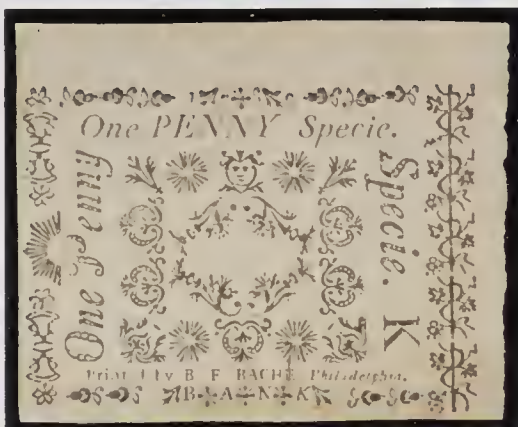 One PENNY Specie.
One Penny
Specie. K
Print by B F BACHE Philadelphia.
B-A-N-K